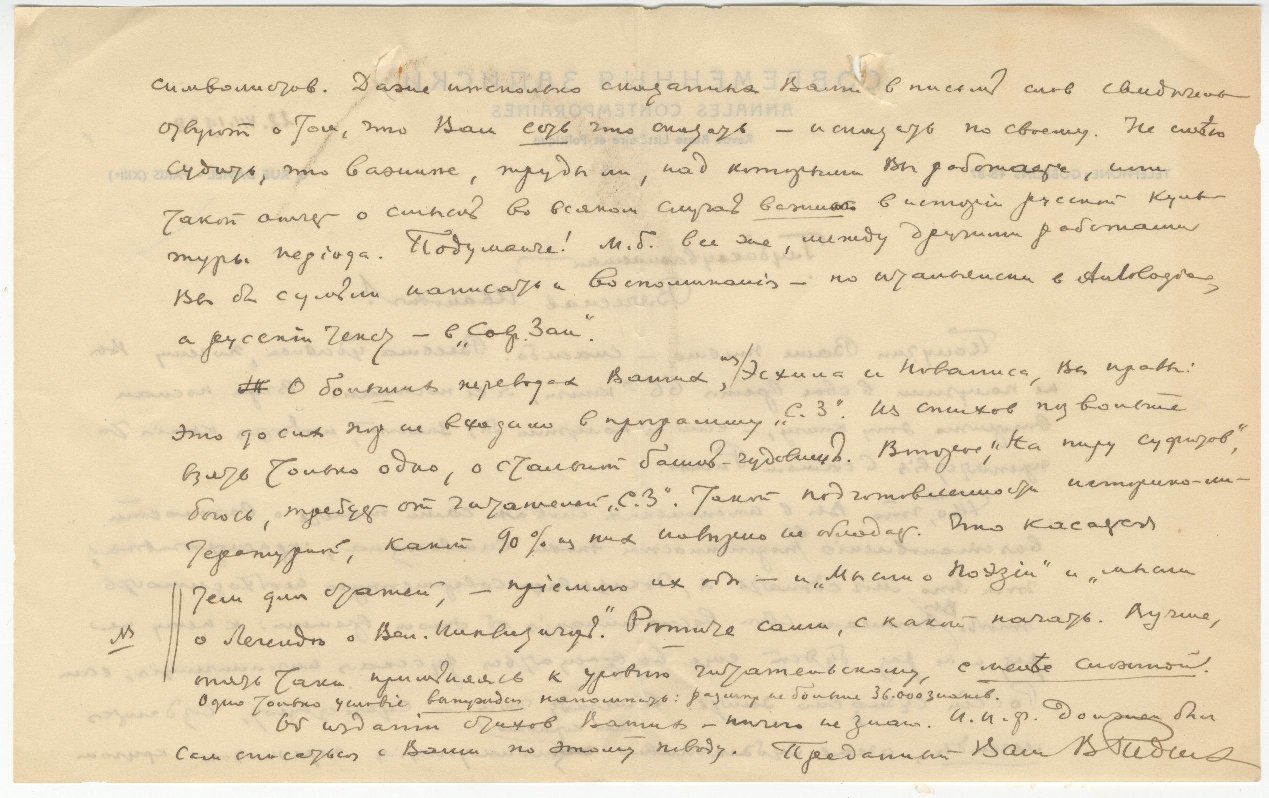 символистов. Даже несколько сказанных Вами в письмѣ слов свидѣтель-
ствуют о том, что Вам есть что сказать — и сказать по своему. Не смѣю
судить, что важнѣе, труды ли, над которыми Вы работаете, или
такой отчет о смыслѣ во всяком случаѣ важнаго в исторіи русской куль-
туры періода. Подумайте! М.б. все же, между другими работами
Вы бы сумѣли написать и воспоминанія — по итальянски в Antologia,
а русскій текст — в „Совр. Зап".
О больших переводах Ваших, из Эсхила и Новалиса, Вы правы:
это до сих пор не входило в программу „С.З". Из стихов позвольте
взять только одно, о стальной башнѣ чудовищѣ. Второе, „На пиру суфитов",
боюсь, требует от читателей „С.З". такой подготовленности историко-ли-
тературной, какой 90% из них навѣрно не обладает. Что касается
тем для статей, — пріемлю их обѣ — и „Мысли о Поэзіи" и „мысли
о Легендѣ о Вел. Инквизиторѣ". Рѣшите сами, с какой начать. Лучше,
NB
опять таки применяясь к уровню читательскому, с менѣе сложной.
Одно только условіе вынужден напомнить: размѣр не больше 36.000 знаков.
Об изданіи стихов Ваших — ничего не знаю. И.И.Ф. должен был
сам списаться с Вами по этому поводу. Преданный Вам В Рудн